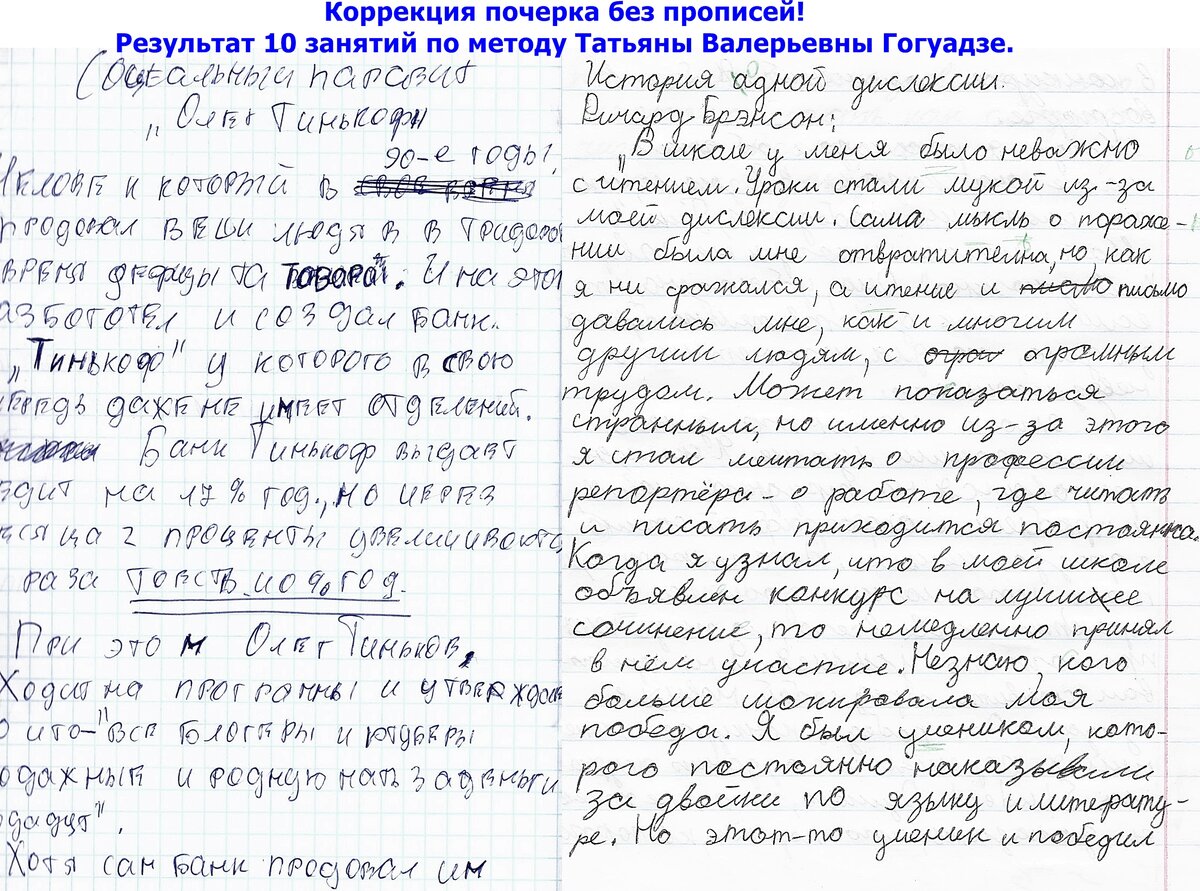 Коррекция почерка без прописей!
Результат 10 занятий по методу Татьяны Валерьевны Гогуадзе.
Социальный паразит
„Олег Тинькофн
90-е годы,
который в
продовал вещи людя в в
время дефицы та товара". И на этом
и создал банк.
„Тинькоф" у которого в свою
даже не имеет отделений.
Банк Тинькоф выдает
на 17% год., но через
2 проценты увеличиваются
раза
При это м Олег Тиньков,
Ходит на программы и утверждает
что-"все блогеры и ютуберы
и родную мать за деньги
дадут".
Хотя сам банк продовал им
История одной дислексии.
Ричард Брэнсон:
„В школе у меня было неважно
с чтением. Уроки стали мукой из-за
моей дислексии. Сама мысль о пораже-
нии была мне отвратительна, но, как
я ни сражался, а чтение и письмо
давались мне, как и многим
другим людям, с огромным
трудом. Может показаться
странным, но именно из-за этого
я стал мечтать о профессии
репортёра - о работе, где читать
и писать приходится постоянно.
Когда я узнал, что в моей школе
объявлен конкурс на лучшее
сочинение, то немедленно принял
в нём участие. Незнаю, кого
больше шокировала моя
победа. Я был учеником, кото-
рого постоянно наказывали
за двойки по языку и литерату-
ре. Но этот-то ученик и победил